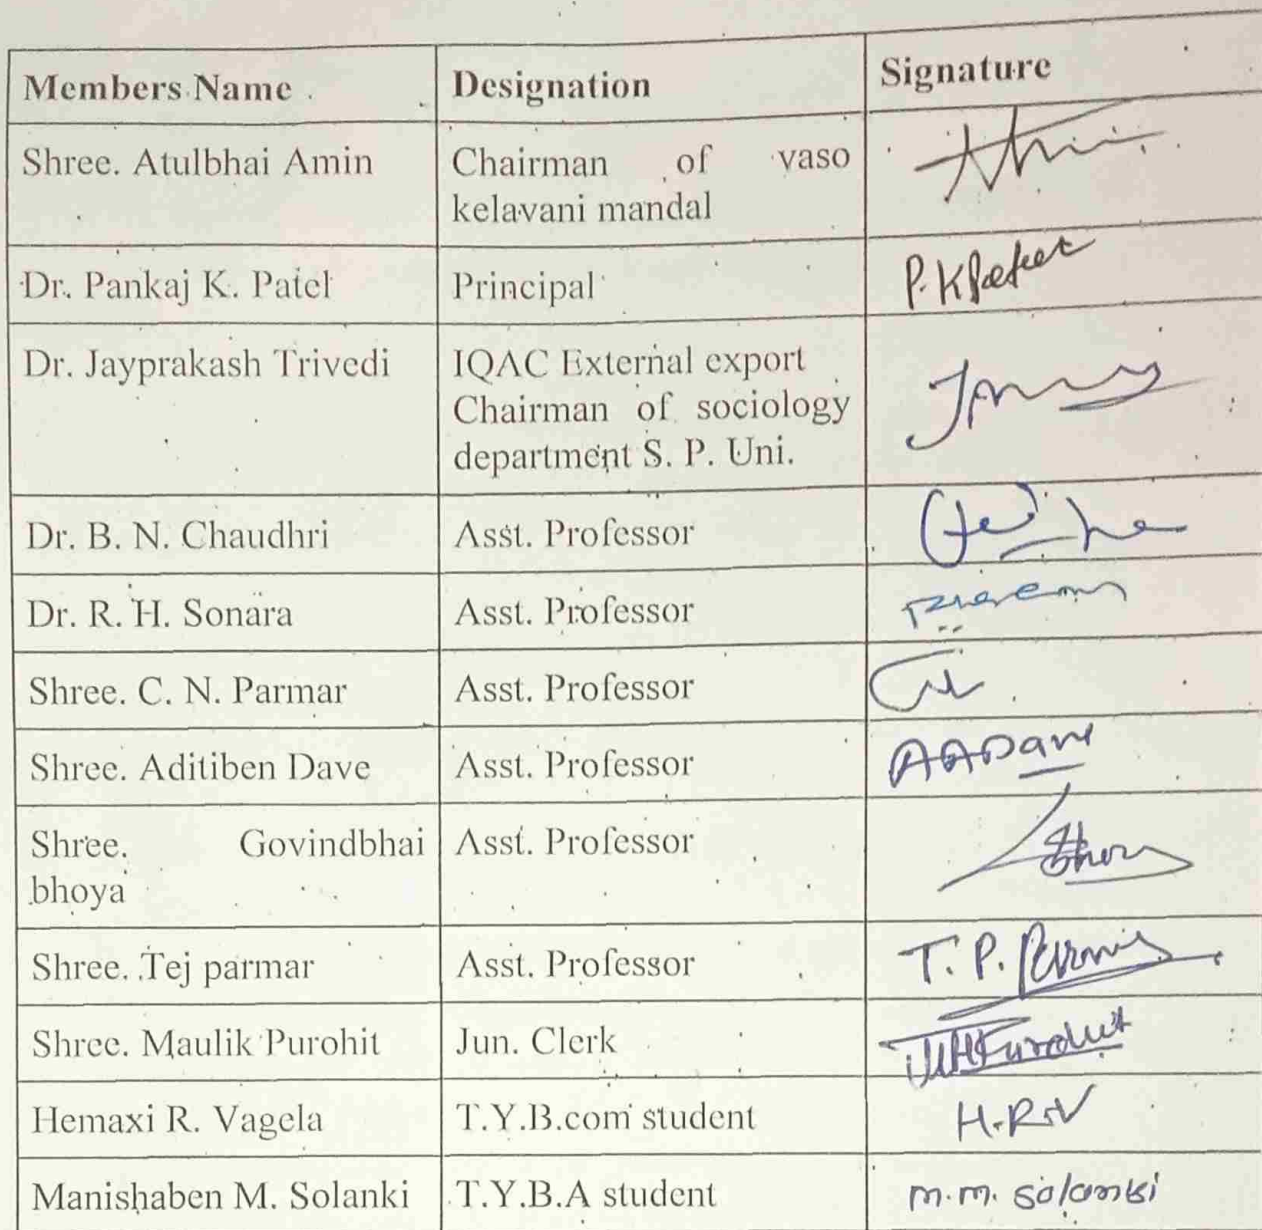 Members Name Designation Signature
Shree. Atulbhai Amin Chairman of vaso
kelavani mandal
Dr. Pankaj K. Patel Principal P. K Patel
Dr. Jayprakash Trivedi IQAC External export
Chairman of sociology
department S. P. Uni.
Dr. B. N. Chaudhri Asst. Professor
Dr. R. H. Sonara Asst. Professor
Shree. C. N. Parmar Asst. Professor
Shree. Aditiben Dave Asst. Professor AADave
Shree. Govindbhai Asst. Professor
bhoya
Shree. Tej parmar Asst. Professor T. P.
Shree. Maulik Purohit Jun. Clerk
Hemaxi R. Vagela T.Y.B.com student H.R.V
Manishaben M. Solanki T.Y.B.A student m.m. solanki